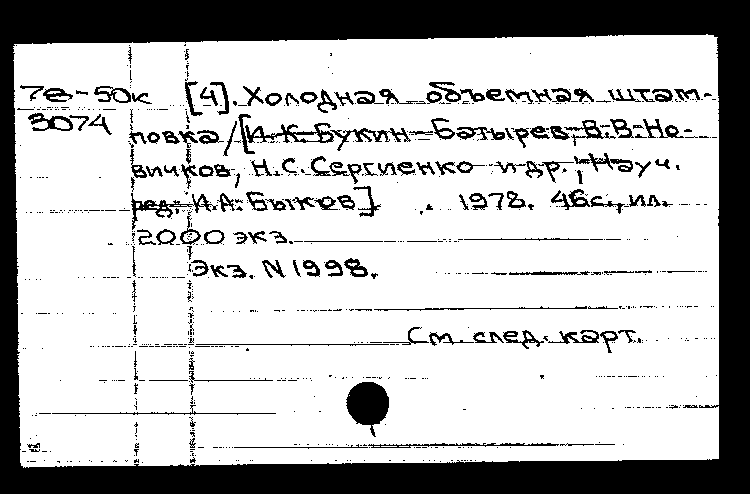 78-50к [4]. Холодная объемная штам-
3074 повка / [И.К. Букин-Батырев, В.В. Но-
вичков, Н.С. Сергиенко и др.; Науч.
ред. И.А. Быков] . 1978. 46с., ил.
2000 экз.
Экз. N 1998.
См. след. карт.